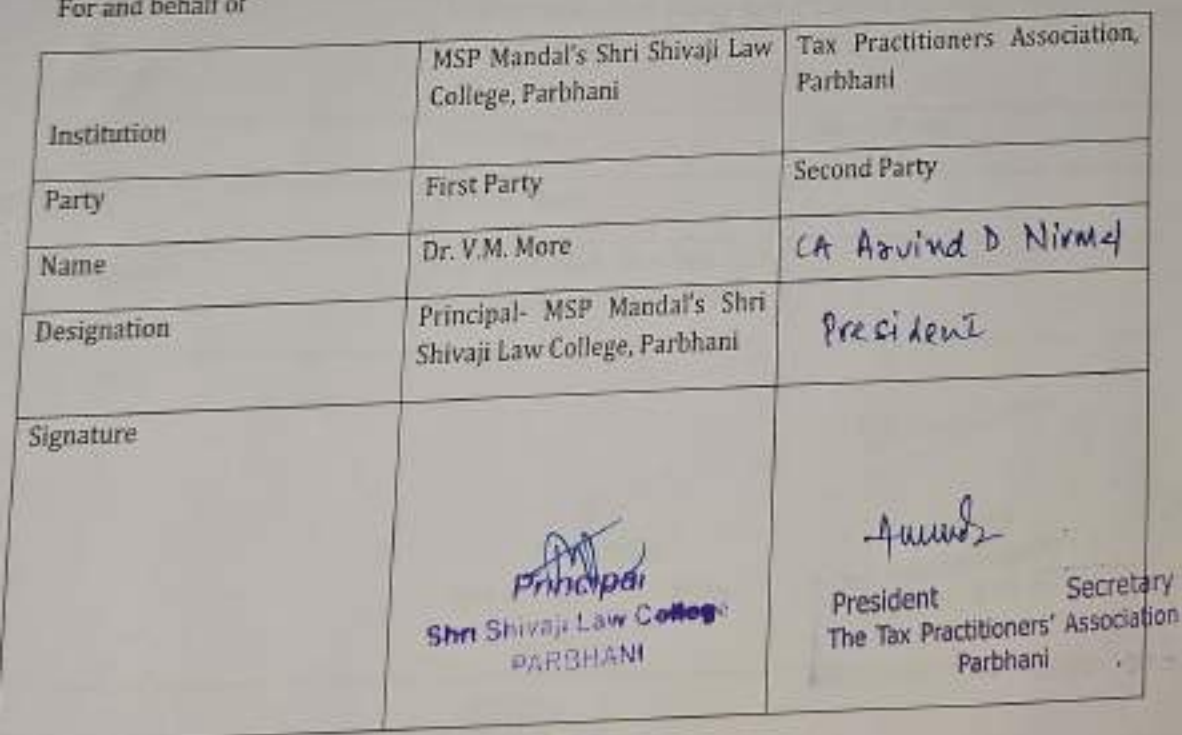 For and behalf of
MSP Mandal's Shri Shivaji Law
College, Parbhani
Tax Practitioners Association,
Parbhani
Institution
Party
First Party
Second Party
Name
Dr. V.M. More
CA Arvind D Nirmal
Designation
Principal- MSP Mandal's Shri
Shivaji Law College, Parbhani
President
Signature
Principal
Shri Shivaji Law College
PARBHANI
President Secretary
The Tax Practitioners' Association
Parbhani